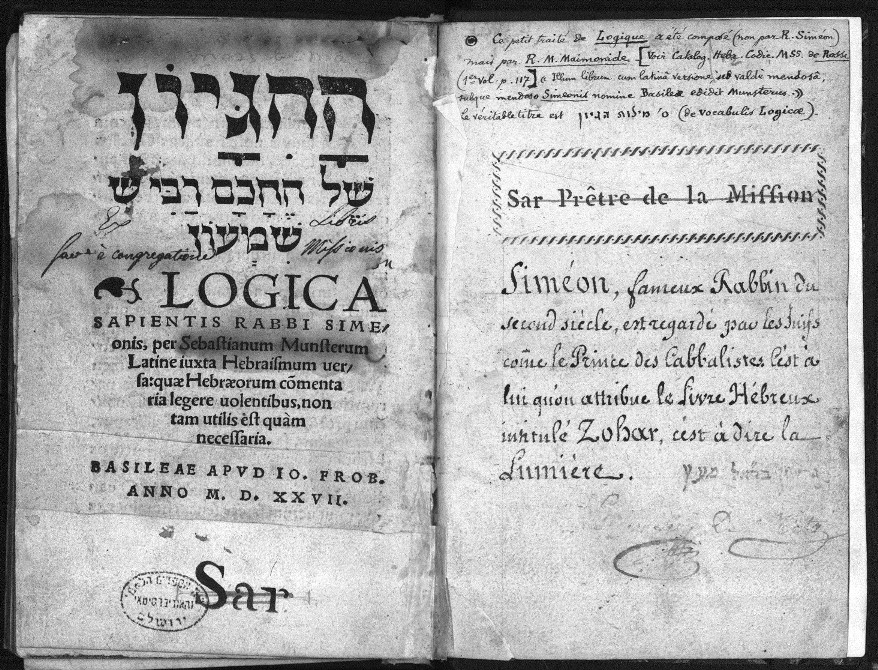 ההגיון
של החכם רבי ש
שמעון
Ex Libris
Missionis
è congregatione
LOGICA
SAPIENTIS RABBI SIME/
onis, per Sebastianum Munsterum
Latine iuxta Hebraiſmum uer/
ſa: quæ Hebræorum cõmenta
ria legere uolentibus, non
tam utilis èſt quàm
neceſſaria.
BASILEAE APVD IO. FROB.
ANNO M. D. XXVII.
Sar
ירושלם
Ce petit traité de Logique a été composé (non par R. Siméon)
mais par R. M. Maimonide [Voir Catalog. Hebr. Codic. MSS. de Rossi
(1er Vol. p. 117] « Illum librum cum latinâ versione sed valde mendosâ,
subque mendoso Simeonis nomine Basileæ edidit Munsterus. »)
le véritable titre est ס׳ מילות הגיון (de vocabulis Logicae).
Sar Prêtre de la Miſſion
Siméon, fameux Rabbin du
second siècle, est regardé par les Juifs
com̃e le Prince des Cabbalistes. C'est à
lui qu'on attribue le Livre Hébreux
intitulé Zohar, c'est à dire la
Lumiére.